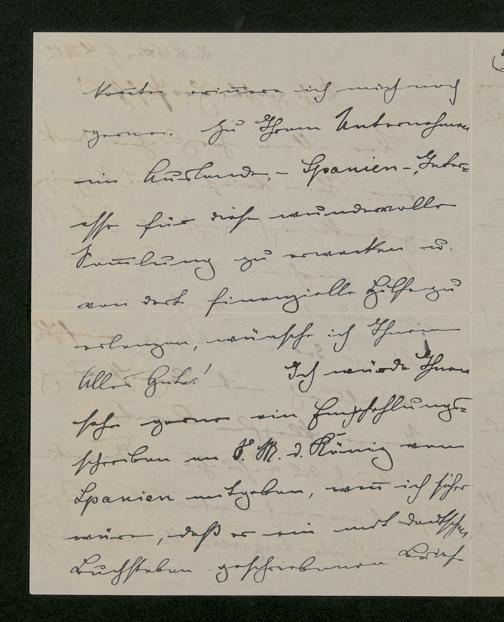 konnte erinnere ich mich noch
gerne. Zu Ihrem Unternehmen
im Auslande, – Spanien –, Inter=
esse für diese wundervolle
Sammlung zu erwecken u.
von dort finanzielle Hilfe zu
erlangen, wünsche ich Ihnen
Alles Gute! Ich würde Ihnen
sehr gerne ein Empfehlungs=
schreiben an S. M. d. König von
Spanien mitgeben, wenn ich sicher
wäre, daß er ein mit deutschen
Buchstaben geschriebenen Brief